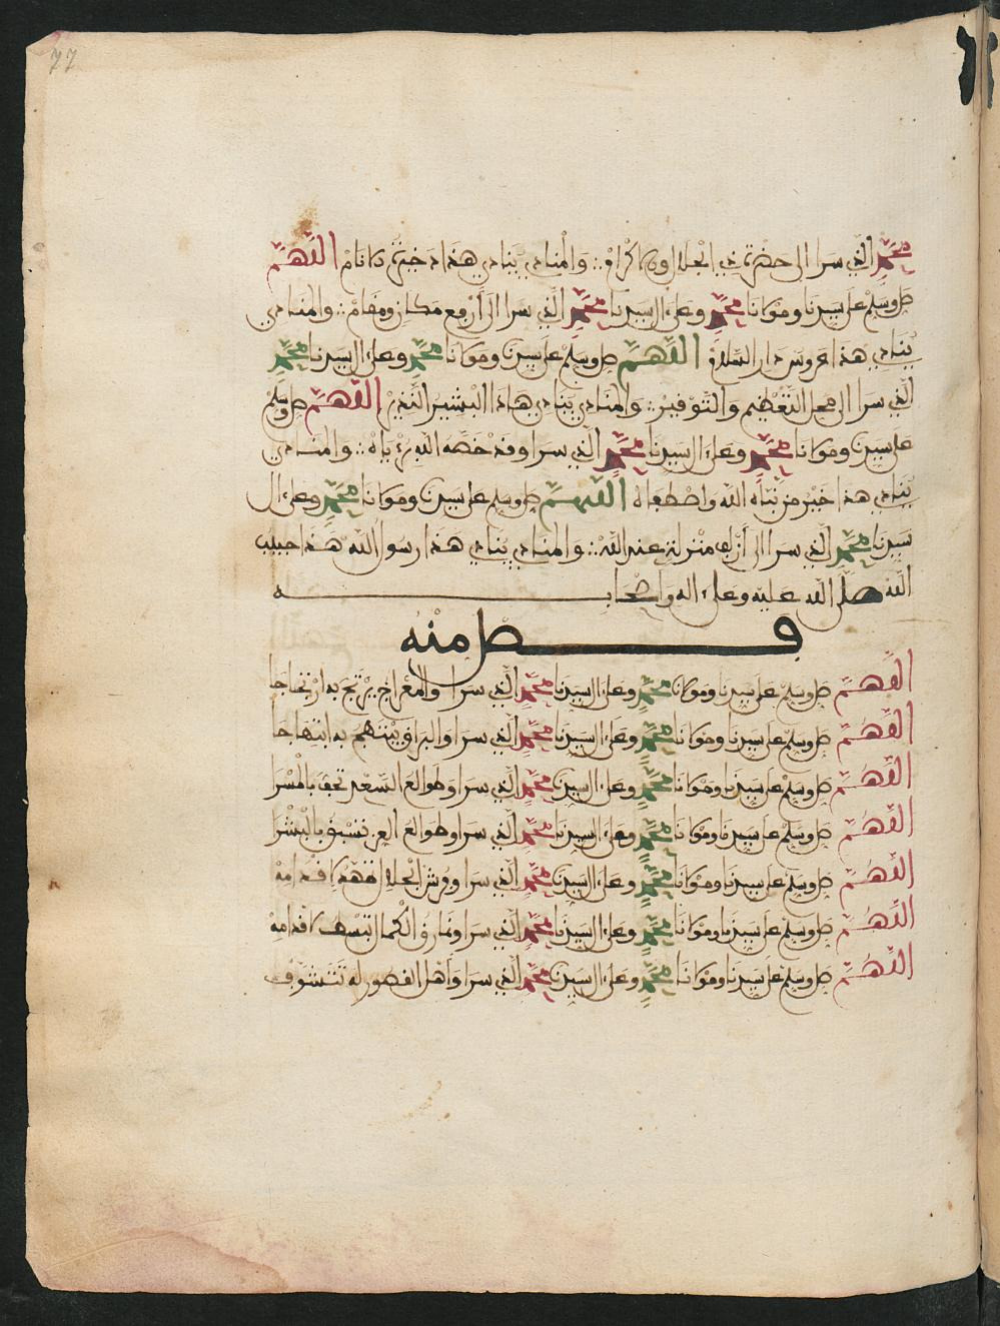 77
محمد الذي سرا الى حضرة ذي الجلال والاكرام ∴ والمنادي ينادي هذا خير الانام اللهم
صل وسلم على سيدنا ومولانا محمد وعلى ال سيدنا محمد الذي سرا الى أرفع مكان ومقام ∴ والمنادي
ينادي هذا عروس دار السلام اللهم صل وسلم على سيدنا ومولانا محمد وعلى ال سيدنا محمد
الذي سرا الى محل التعظيم والتوفير ∴ والمنادي ينادي هاذا البشير النذير اللهم صل وسلم
على سيدنا ومولانا محمد وعلى ال سيدنا محمد الذي سرا وقد خصه الله ∴ والمنادي
ينادي هذا خير من نباه الله واصطفاه اللهم صل وسلم على سيدنا ومولانا محمد وعلى ال
سيدنا محمد الذي سرا الى أزلف منزلة عند الله ∴ والمنادي ينادي هذا رسول الله هذا حبيب
الله صلى الله عليه وعلى اله واصحابه
فصل منه
اللهم صل وسلم على سيدنا ومولانا محمد وعلى ال سيدنا محمد الذي سرا والمعراج يرتج به ارتجاجا
اللهم صل وسلم على سيدنا ومولانا محمد وعلى ال سيدنا محمد الذي سرا والبراق يبتهج به ابتهاجا
اللهم صل وسلم على سيدنا ومولانا محمد وعلى ال سيدنا محمد الذي سرا وطوالع السعد تحف بالمسرا
اللهم صل وسلم على سيدنا ومولانا محمد وعلى ال سيدنا محمد الذي سرا وطوالع العز تسبق بالبشرا
اللهم صل وسلم على سيدنا ومولانا محمد وعلى ال سيدنا محمد الذي سرا وفرش الجلال تمهد لاقدامه
اللهم صل وسلم على سيدنا ومولانا محمد وعلى ال سيدنا محمد الذي سرا ونمارق الكمال تبسط لاقدامه
اللهم صل وسلم على سيدنا ومولانا محمد وعلى ال سيدنا محمد الذي سرا وأهل القصور له تتشوف